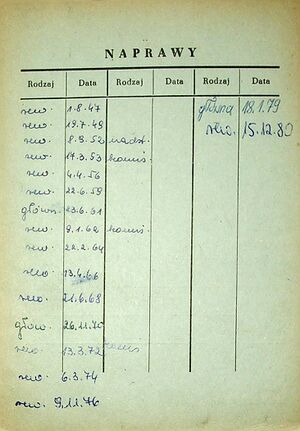 NAPRAWY
Rodzaj Data Rodzaj Data Rodzaj Data
rew. 1.8.47 główna 18.1.79
rew. 19.7.49 rew. 15.12.80
rew. 8.9.52 nadzw.
rew. 17.3.53
rew. 4.4.56
rew. 22.6.59
główn. 23.6.61
rew. 9.1.62
rew. 22.2.64
rew 13.4.66
rew. 21.6.68
głów. 26.11.70
rew. 13.3.72
rew. 6.3.74
rew. 9.11.76